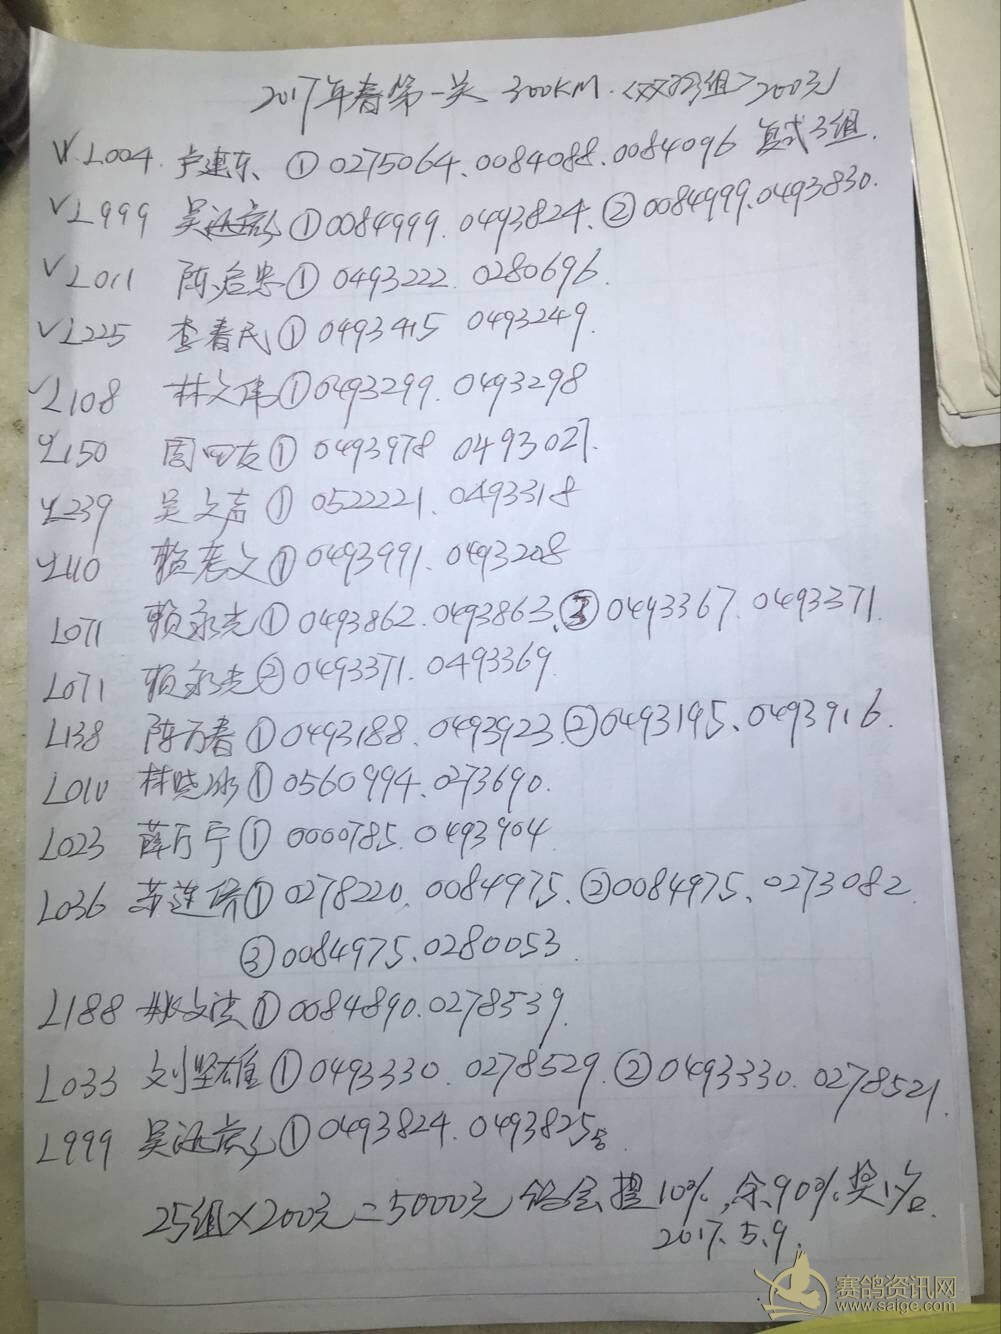 2017年春第一关 300KM.<双鸽组>200元
√L004. 卢建东 ① 0275064、0084088、0084096 复式3组.
√L999 吴迅彪①0084999. 0493824、②0084999、0493830.
√L011 陈启忠① 0493222. 0280696.
√L225 李春民① 0493415 0493249.
√L108 林文伟①0493299. 0493298
√L150 周四友① 0493978 0493027.
√L239 吴文声① 0522221、0493318
√L110 赖老义① 0493991. 0493208
L071 赖永光① 0493862. 0493863、③0493367. 0493371.
L071 赖永光②0493371. 0493369.
L138 陈万春①0493188. 0493923.②0493195、0493916.
L010 林晓冰① 0560994、0273690.
L023 薛万宁① 0000785. 0493904
L036 苏莲 ① 0278220, 0084975、②0084975、0273082.
③0084975、0280053.
L188 文法①0084890. 0278539.
L033 刘坚雄①0493330. 0278529. ②0493330. 0278521.
L999 吴迅彪①0493824. 0493825
25组×200元=5000元 鸽会提10%,余90%奖1名.
2017.5.9.
赛鸽资讯网
www.saige.com